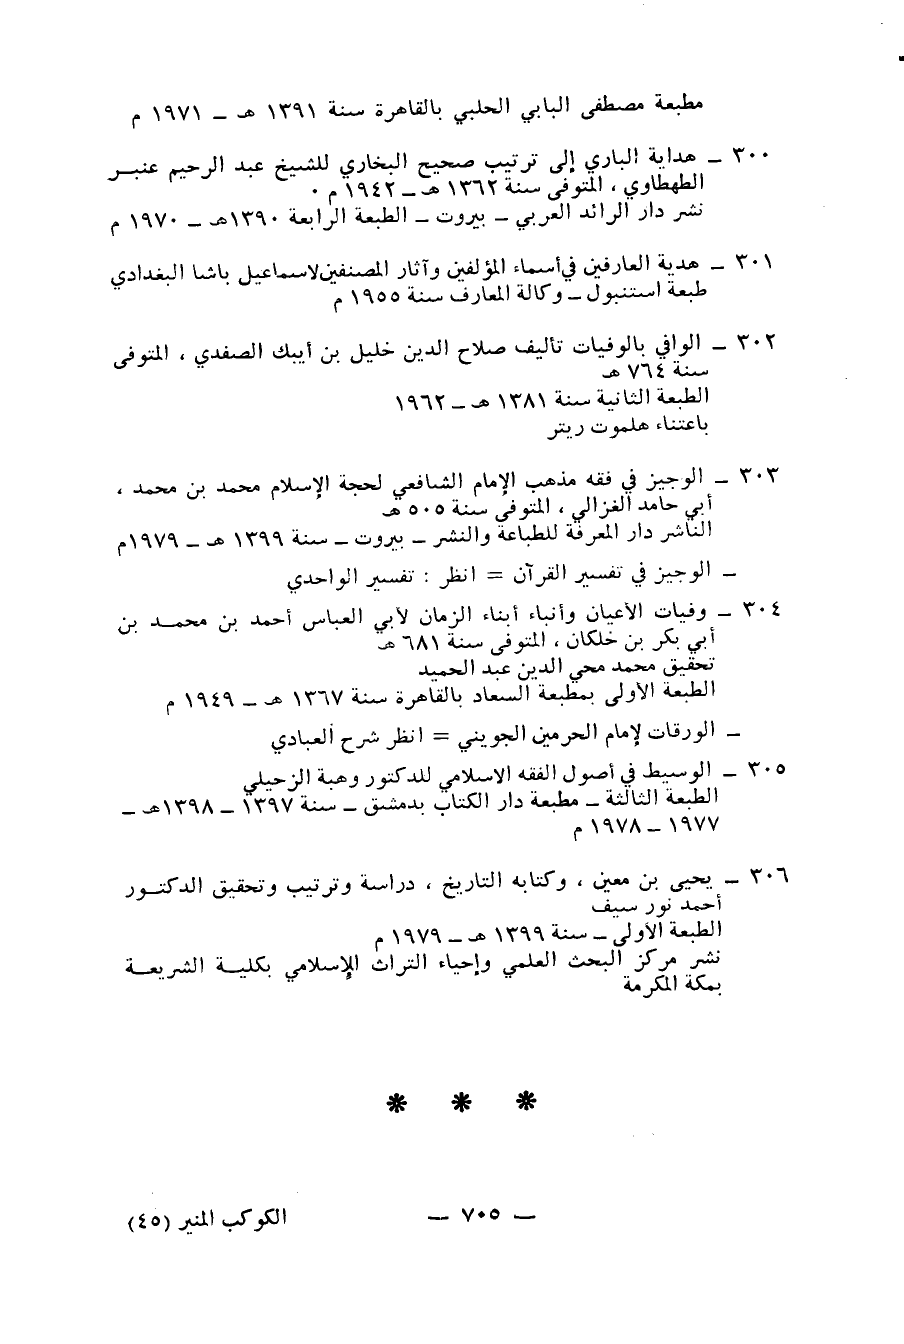 مطبعة مصطفى البابي الحلبي بالقاهرة سنة ١٣٩١ هـ ــ ١٩٧١ م
٣٠٠ ــ هداية الباري إلى ترتيب صحيح البخاري للشيخ عبد الرحيم عنبـر
الطهطاوي ، المتوفى سنة ١٣٦٢ هـ ــ ١٩٤٢ م ٠
نشر دار الرائد العربي ــ بيروت ــ الطبعة الرابعة ١٣٩٠هـ ــ ١٩٧٠ م
٣٠١ ــ هدية العارفين في أسماء المؤلفين وآثار المصنفين لاسماعيل باشا البغدادي
طبعة استنبول ــ وكالة المعارف سنة ١٩٥٥ م
٣٠٢ ــ الوافي بالوفيات تأليف صلاح الدين خليل بن أيبك الصفدي ، المتوفى
سنة ٧٦٤ هـ
الطبعة الثانية سنة ١٣٨١ هـ ــ ١٩٦٢
باعتناء هلموت ريتر
٣٠٣ ــ الوجيز في فقه مذهب الإمام الشافعي لحجة الإسلام محمد بن محمد ،
أبي حامد الغزالي ، المتوفى سنة ٥٠٥ هـ
الناشر دار المعرفة للطباعة والنشر ــ بيروت ــ سنة ١٣٩٩ هـ ــ ١٩٧٩م
ــ الوجيز في تفسير القرآن = انظر : تفسير الواحدي
٣٠٤ ــ وفيات الأعيان وأنباء أبناء الزمان لأبي العباس أحمد بن محمـد بن
أبي بكر بن خلكان ، المتوفى سنة ٦٨١ هـ
تحقيق محمد محي الدين عبد الحميد
الطبعة الأولى بمطبعة السعاد بالقاهرة سنة ١٣٦٧ هـ ــ ١٩٤٩ م
ــ الورقات لإمام الحرمين الجويني = انظر شرح العبادي
٣٠٥ ــ الوسيط في أصول الفقه الاسلامي للدكتور وهبة الزحيلي
الطبعة الثالثة ــ مطبعة دار الكتاب بدمشق ــ سنة ١٣٩٧ ــ ١٣٩٨هـ ــ
١٩٧٧ ــ ١٩٧٨ م
٣٠٦ ــ يحيى بن معين ، وكتابه التاريخ ، دراسة وترتيب وتحقيق الدكتـور
أحمد نور سيف
الطبعة الأولى ــ سنة ١٣٩٩ هـ ــ ١٩٧٩ م
نشر مركز البحث العلمي وإحياء التراث الإسلامي بكليـة الشريعـة
بمكة المكرمة
* * *
ــ ٧٠٥ ــ
الكوكب المنير (٤٥)